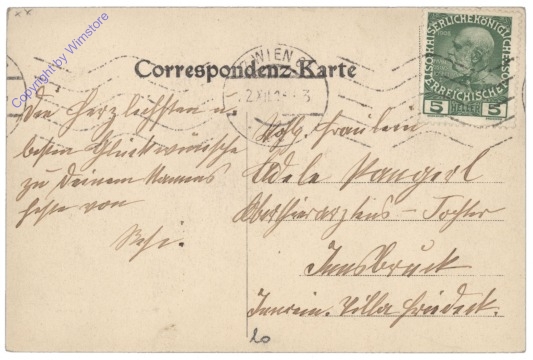 Copyright by Wimstore
WIEN
Correspondenz-Karte
KAISERLICHE KÖNIGLICHE ÖSTERREICHISCHE
5 5
Die herzlichsten u.
besten Glückwünsche
zu Deinem Namens
feste von
Hochg. Fräulein
Adele Pangerl
Obertierarztens – Tochter
Innsbruck
Innrain. Villa Friedeck.
20